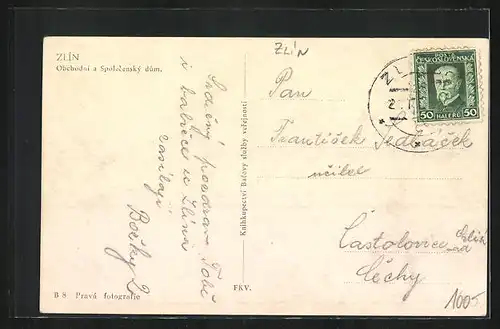 ZLÍN
Obchodní a Společenský dům.
Srdečný pozdrav Tobě
i babičce ze Zlína
zasílají
B 8 Pravá fotografie
Knihkupectví Baťovy služby veřejnosti
FKV.
ZLÍN
Pan
František Sedláček
učitel
Častolovice
Čechy
ZL
POŠTA
ČESKOSLOVENSKÁ
50 HALÉŘŮ 50
100.-